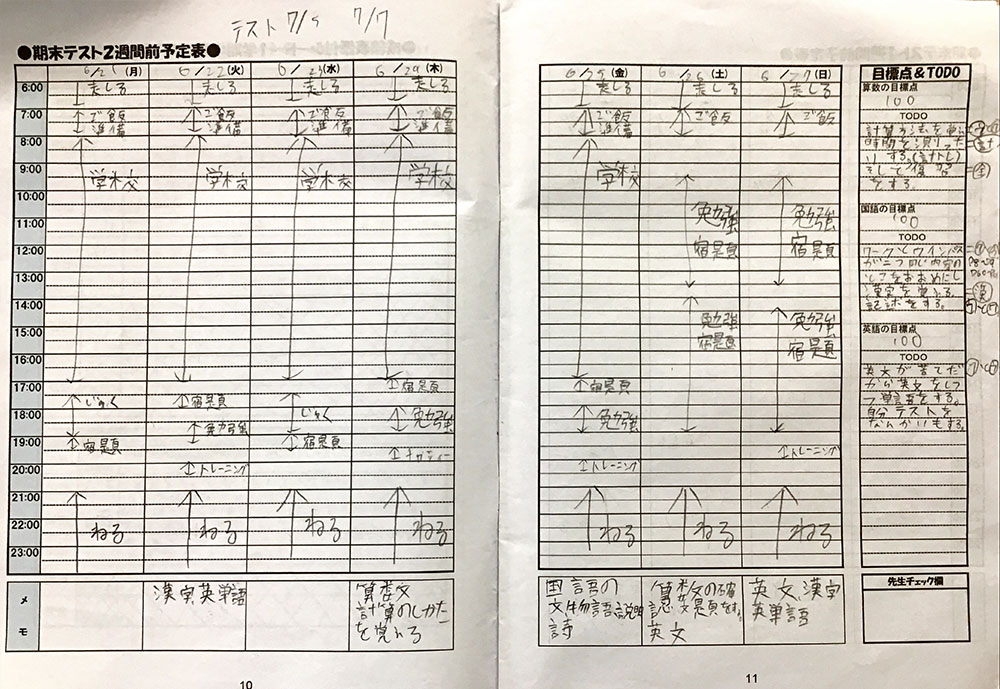 テスト 7/5 7/7
●期末テスト2週間前予定表●
6/21(月) 6/22(火) 6/23(水) 6/24(木)
6:00 走しる 走しる 走しる 走しる
7:00 ご飯 準備 ご飯 準備 ご飯 準備 ご飯 準備
8:00
9:00 学校 学校 学校 学校
10:00
11:00
12:00
13:00
14:00
15:00
16:00
17:00 じゅく 宿題 じゅく 宿題
18:00 勉強 勉強
19:00 宿題 宿題
20:00 トレーニング
21:00
22:00 ねる ねる ねる ねる
23:00
メモ
漢字英単語
算数文
計算のしかた
を覚れる
10
6/25(金) 6/26(土) 6/27(日)
走しる 走しる 走しる
ご飯 準備 ご飯 ご飯
学校
勉強 勉強
宿題 宿題
勉強 勉強
宿題 宿題
宿題
勉強
トレーニング トレーニング
ねる ねる ねる
国語の
文物語説明
詩
算数の確
認文題をす。
英文
英文、漢字
英単語
目標点&TODO
算数の目標点
100
TODO
時間を測ってた
りする。(計トレ)
そして復習
をする。
国語の目標点
100
TODO
漢字を覚れる。
記述をする。
英語の目標点
100
TODO
英文が苦てだ
から英文をして
単語をする。
自分テストを
なんかいもする。
先生チェック欄
11